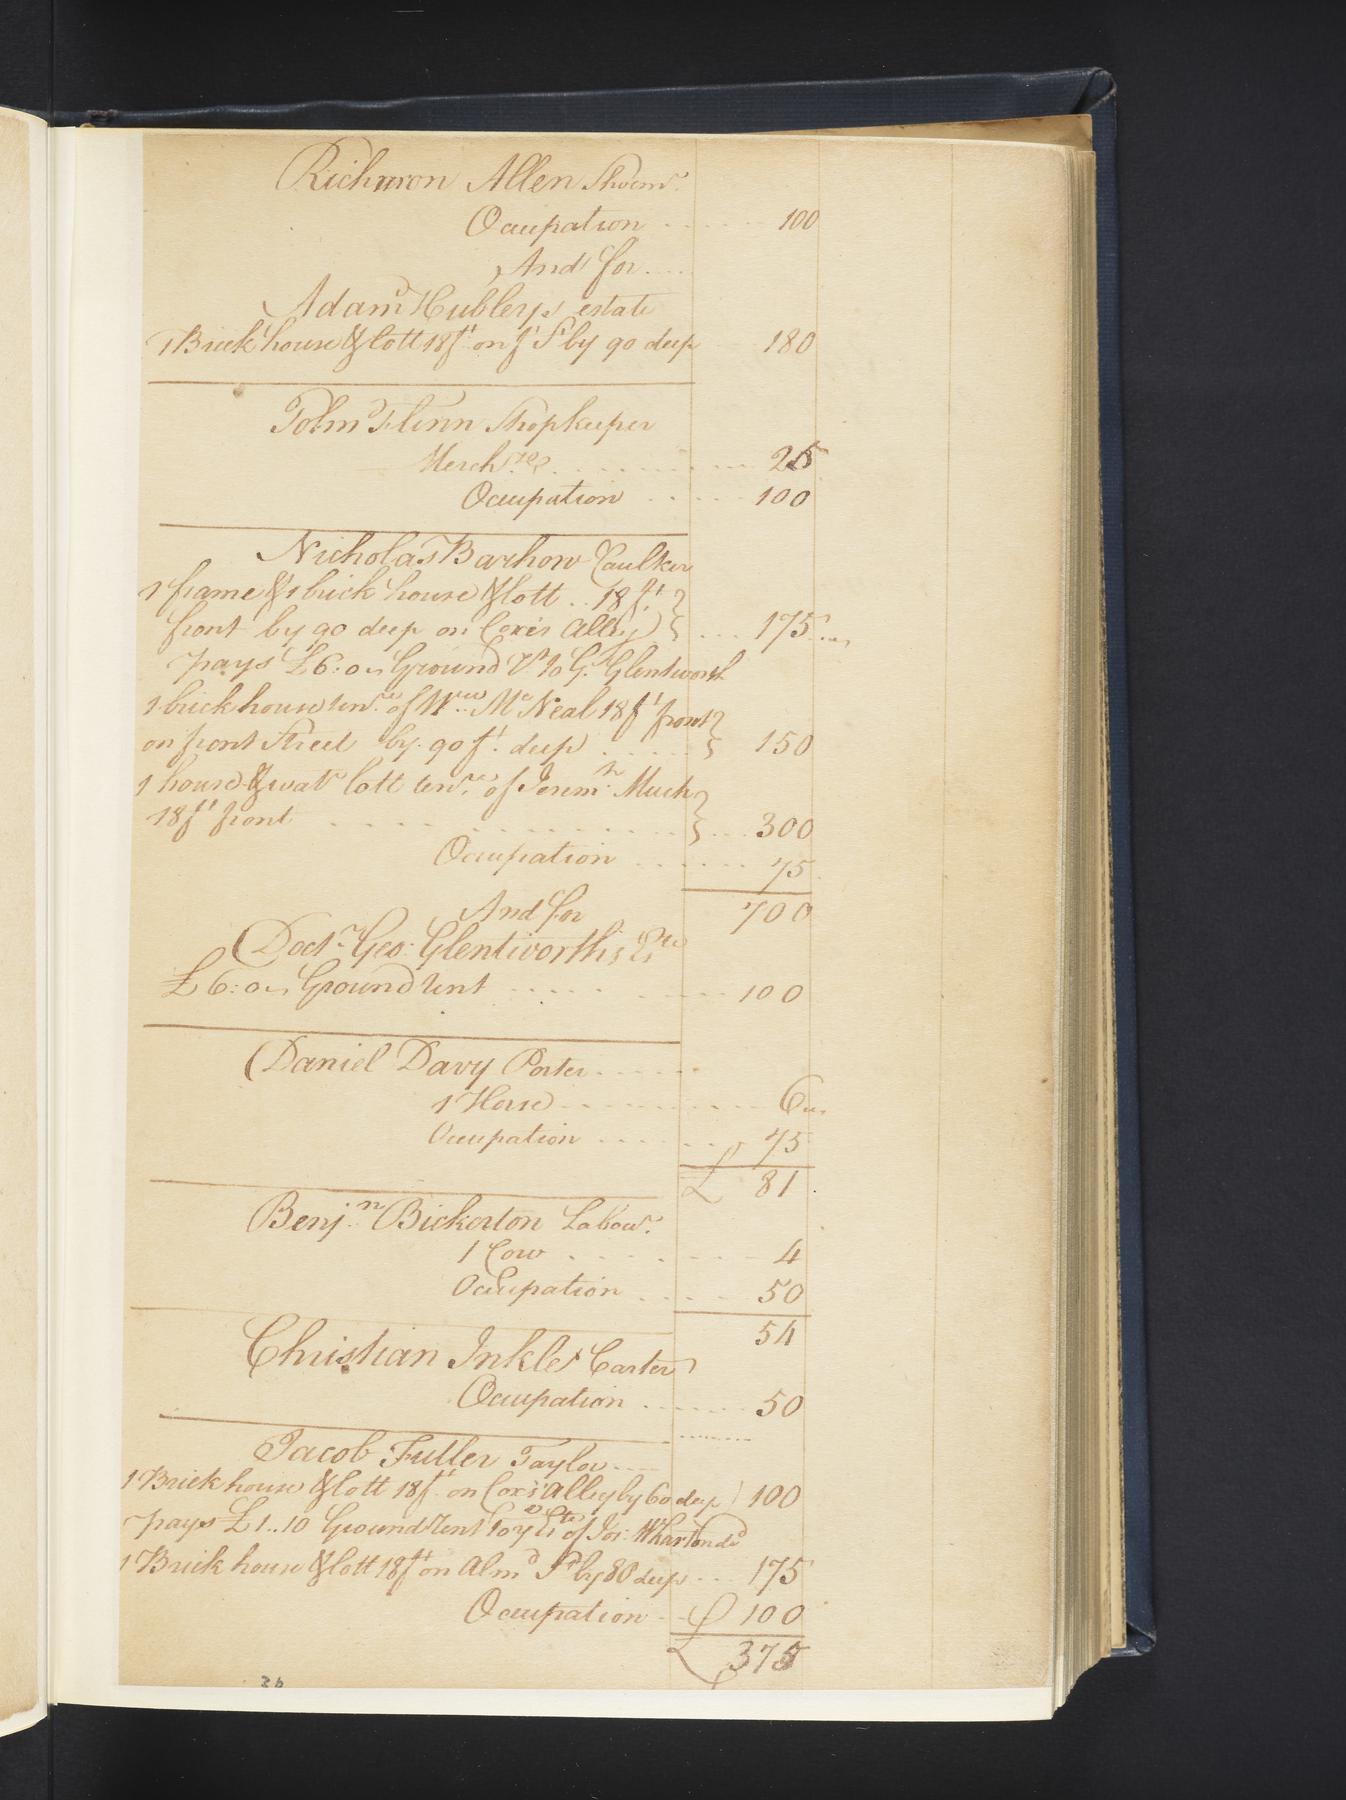 Richuron Allen Shoemr.
Occupation ...... 100
And for ....
Adam Hubleys estate
1 Brick house & lott 18 ft on ft St by 90 deep 180
John Flinn Shopkeeper
Merchze. ...... 25
Occupation ...... 100
Nicholas Barhow Caulker
1 frame & 1 brick house & lott .. 18 ft
front by 90 deep on Coxes Alley ... 175
pays £6:0 Ground Rt to G. Glentworth
1 brick house tenre of Wm Mc Neal 18 ft front
on front Street by 90 ft. deep ..... 150
1 house & watr lott tenre of Jeremh Much
18 ft front ...... 300
Occupation ...... 75
700
And for
Doctr Geo: Glentworth's Este
£6:0 Ground rent ...... 100
Daniel Davy Porter .....
1 Horse ...... 6
Occupation ...... 75
£ 81
Benjn Bickerton Labour.
1 Cow ...... 4
Occupation ...... 50
54
Christian Inkle Carter
Occupation ...... 50
Jacob Fuller Taylor ....
1 Brick house & lott 18 ft on Cox's Alley by 60 deep 100
pays £1..10 Ground Rent to ye Este of Jos: Wharton decd
1 Brick house & lott 18 ft on Almd St by 80 deep ... 175
Occupation .. 100
£ 375
36